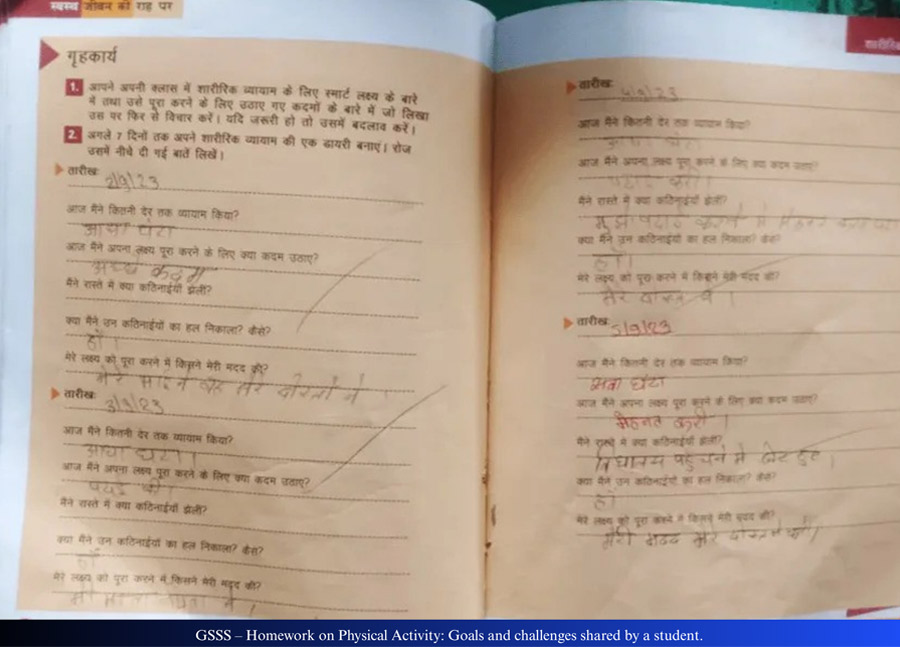 स्वस्थ जीवन की राह पर
गृहकार्य
1. आपने अपनी क्लास में शारीरिक व्यायाम के लिए स्मार्ट लक्ष्य के बारे
में तथा उसे पूरा करने के लिए उठाए गए कदमों के बारे में जो लिखा
उस पर फिर से विचार करें। यदि जरूरी हो तो उसमें बदलाव करें।
2. अगले 7 दिनों तक अपने शारीरिक व्यायाम की एक डायरी बनाएं। रोज
उसमें नीचे दी गई बातें लिखें।
तारीखः 2/9/23
आज मैंने कितनी देर तक व्यायाम किया?
आधा घंटा
आज मैंने अपना लक्ष्य पूरा करने के लिए क्या कदम उठाए?
कदम
मैंने रास्ते में क्या कठिनाईयाँ झेलीं?
क्या मैंने उन कठिनाईयों का हल निकाला? कैसे?
हाँ।
मेरे लक्ष्य को पूरा करने में किसने मेरी मदद की?
मेरे मेरे दोस्तों ने
तारीखः 3/9/23
आज मैंने कितनी देर तक व्यायाम किया?
आधा घंटा।
आज मैंने अपना लक्ष्य पूरा करने के लिए क्या कदम उठाए?
की।
मैंने रास्ते में क्या कठिनाईयाँ झेलीं?
क्या मैंने उन कठिनाईयों का हल निकाला? कैसे?
हाँ
मेरे लक्ष्य को पूरा करने में किसने मेरी मदद की?
ने।
तारीखः 4/9/23
आज मैंने कितनी देर तक व्यायाम किया?
आज मैंने अपना लक्ष्य पूरा करने के लिए क्या कदम उठाए?
करी।
मैंने रास्ते में क्या कठिनाईयाँ झेलीं?
क्या मैंने उन कठिनाईयों का हल निकाला? कैसे?
हाँ।
मेरे लक्ष्य को पूरा करने में किसने मेरी मदद की?
मेरे
तारीखः 5/9/23
आज मैंने कितनी देर तक व्यायाम किया?
सवा घंटा
आज मैंने अपना लक्ष्य पूरा करने के लिए क्या कदम उठाए?
मेहनत करी।
मैंने रास्ते में क्या कठिनाईयाँ झेलीं?
विद्यालय पहुचने में लेट हुए।
क्या मैंने उन कठिनाईयों का हल निकाला? कैसे?
हाँ
मेरे लक्ष्य को पूरा करने में किसने मेरी मदद की?
मेरी मदद मेरे
GSSS – Homework on Physical Activity: Goals and challenges shared by a student.